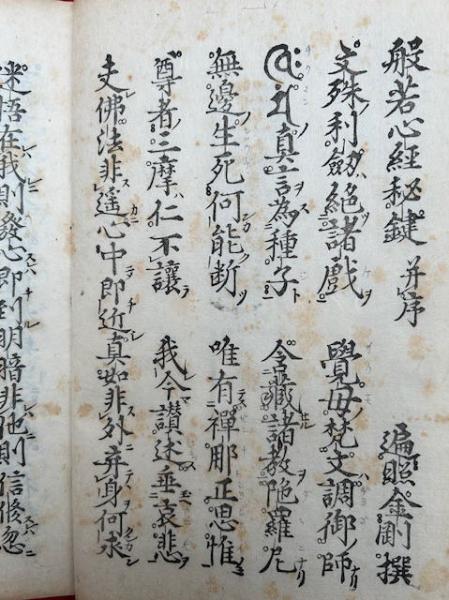 般若心經秘鍵 并序 遍照金剛撰
文殊利劔絶諸戲 覺母梵文調御師
真言為種子 含藏諸教陀羅尼
無邊生死何能断 唯有禪那正思惟
尊者三摩仁不讓 我今讃述垂哀悲
夫佛法非遥心中即近真如非外弃身何求
迷悟在我則發心即到明暗非他則信修忽